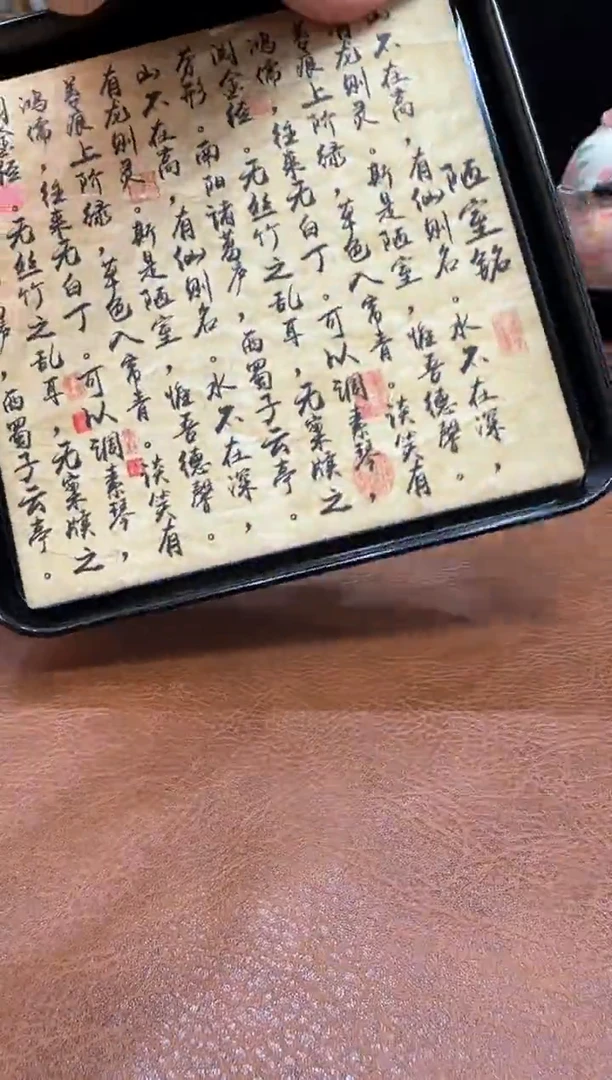 陋室铭
山不在高，有仙则名。水不在深，
有龙则灵。斯是陋室，惟吾德馨。
苔痕上阶绿，草色入帘青。谈笑有
鸿儒，往来无白丁。可以调素琴，
阅金经。无丝竹之乱耳，无案牍之
劳形。南阳诸葛庐，西蜀子云亭。
山不在高，有仙则名。水不在深，
有龙则灵。斯是陋室，惟吾德馨。
苔痕上阶绿，草色入帘青。谈笑有
鸿儒，往来无白丁。可以调素琴，
阅金经。无丝竹之乱耳，无案牍之
西蜀子云亭。